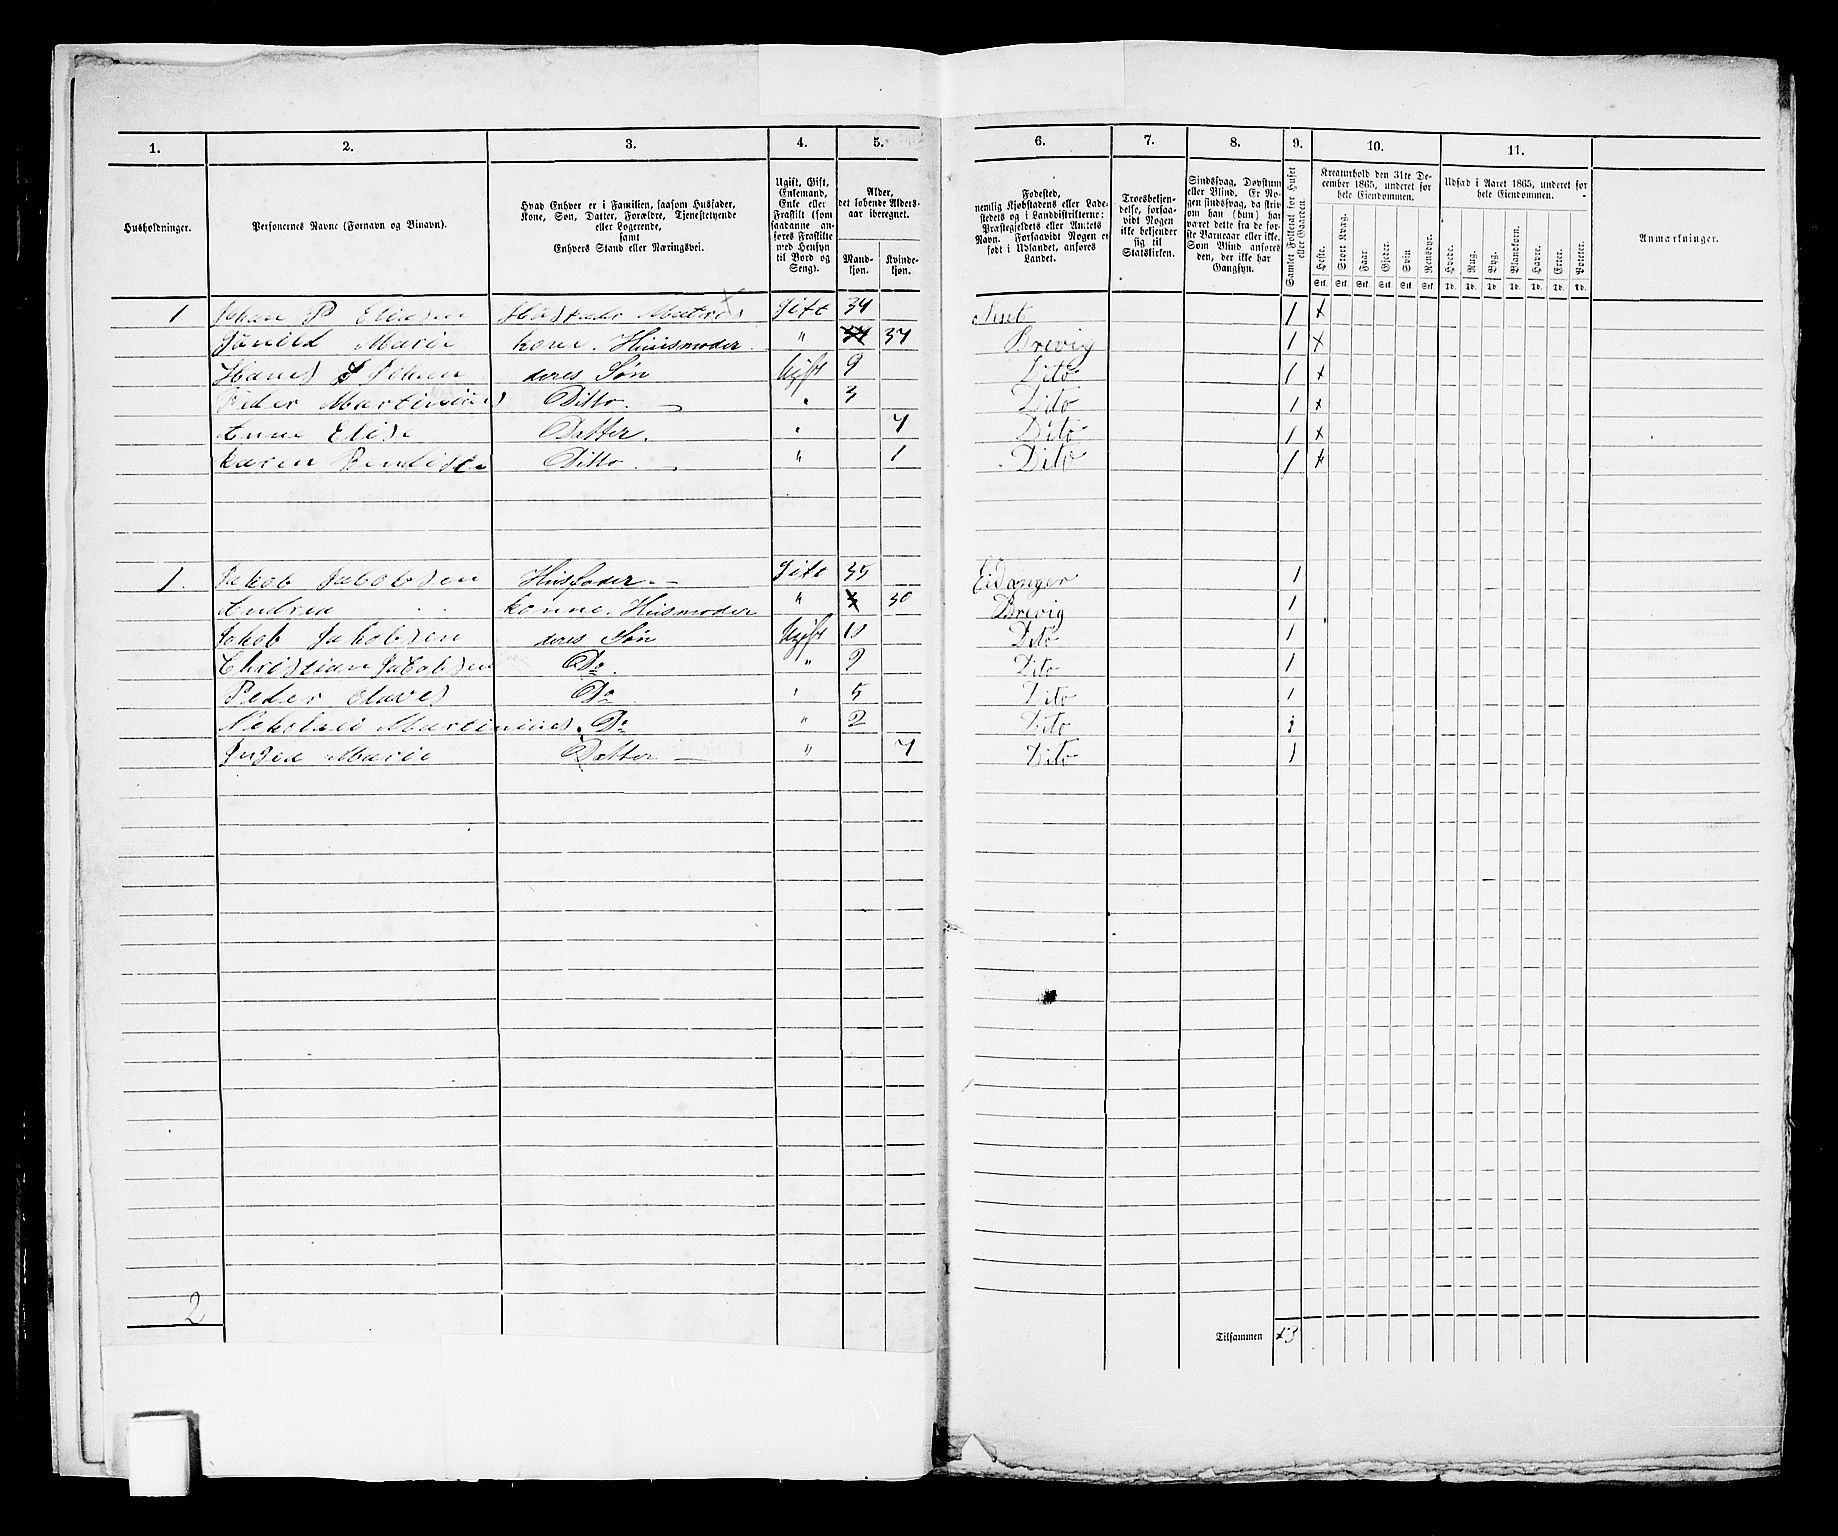 1. 2. 3. 4. 5. 6. 7. 8. 9. 10. 11.
Husholdninger.
Personernes Navne (Fornavn og Binavn).
Hvad Enhver er i Familien, saasom Husfader,
Kone, Søn, Datter, Forældre, Tjenestetyende
eller Logerende,
samt
Enhvers Stand eller Næringsvei.
Ugift, Gift,
Enkemand,
Enke eller
Fraskilt (som
saadanne an-
føres Fraskilte
med Hensyn
til Bord og
Seng).
Alder,
det løbende Alders-
aar iberegnet.
Mand-
kjøn.
Kvinde-
kjøn.
Fødested,
nemlig Kjøbstadens eller Lade-
stedets og i Landdistrikterne:
Præstegjeldets eller Amtets
Navn. Forsaavidt Nogen er
født i Udlandet, anføres
Landet.
Troesbekjen-
delse, forsaa-
vidt Nogen
ikke bekjender
sig til
Statskirken.
Sindssvag, Døvstum
eller Blind. Er No-
gen sindssvag, da skri-
ves
han (hun) har
været dette fra de før-
ste Barneaar eller ikke.
Som Blind anføres
den, der ikke har
Gangsyn.
Samlet Folketal for Huset
eller Gaarden.
Kreaturhold den 31te De-
cember 1865, underet for
hele Eiendommen.
Heste. Stort Kvæg. Faar. Gjeder. Svin. Rensdyr.
Stk. Stk. Stk. Stk. Stk. Stk.
Udsæd i Aaret 1865, underet for
hele Eiendommen.
Hvede. Rug. Byg. Blandkorn. Havre. Erter. Poteter.
Td. Td. Td. Td. Td. Td. Td.
Anmærkninger.
1 Johan P Eliasen Husfader Matros Gift 34 1 x
Marie kone. Huusmoder " 37 Brevig 1 x
Hans Johan deres Søn Ugift 9 Dito 1 x
Peder Martinius Ditto. " 3 Dito 1 x
Anne Elise Datter. " 7 Dito 1 x
Karen Ditto " 1 Dito 1 x
1. Jakob Jacobsen Husfader Gift 35 Eidanger 1
Andrea konne. Husmoder " 30 Brevig 1
Jakob Jakobsen deres Søn Ugift 10 Dito 1
Christian Jacobsen Do " 9 Dito 1
Peder Olaves Do " 5 Dito 1
Nikolai Martinius. Do " 2 Dito 1
Marie Datter " 7 Dito 1
2
Tilsammen 13